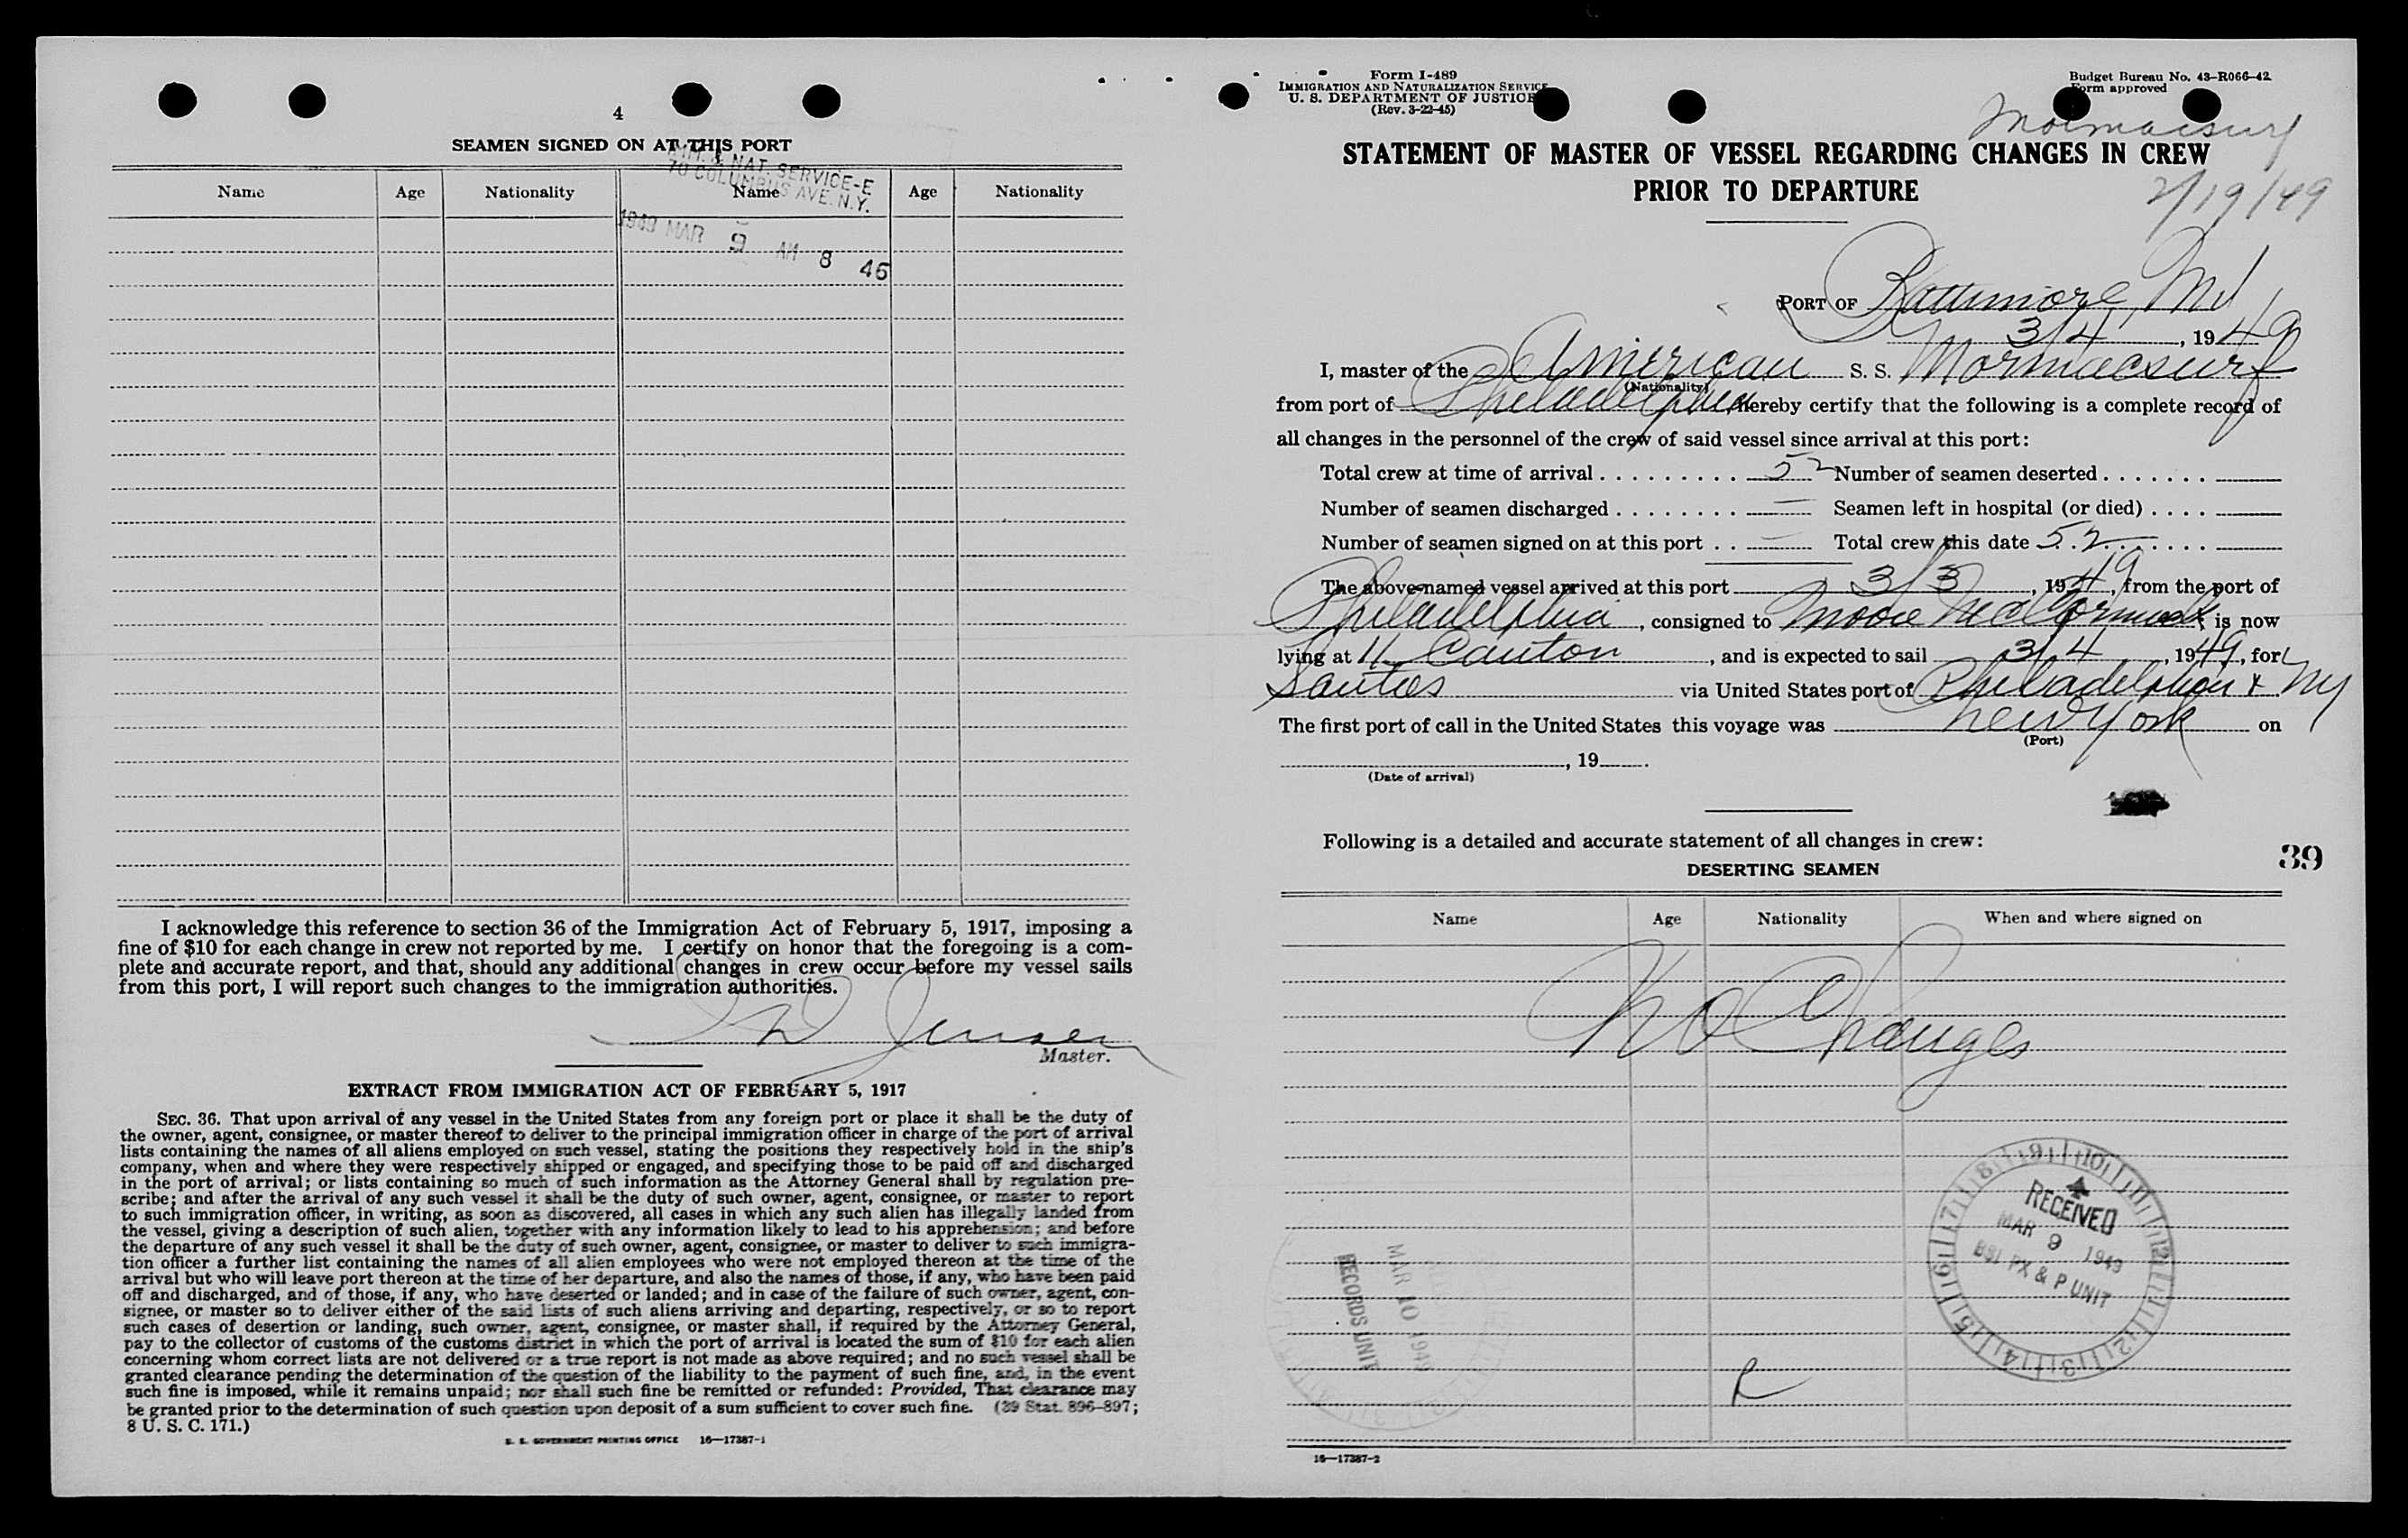 4
SEAMEN SIGNED ON AT THIS PORT
IMM. & NAT. SERVICE-E
70 COLUMBUS AVE. N.Y.
Name Age Nationality Name Age Nationality
1949 MAR 9 AM 8 46
I acknowledge this reference to section 36 of the Immigration Act of February 5, 1917, imposing a
fine of $10 for each change in crew not reported by me. I certify on honor that the foregoing is a com-
plete and accurate report, and that, should any additional changes in crew occur before my vessel sails
from this port, I will report such changes to the immigration authorities.
Jensen
Master.
EXTRACT FROM IMMIGRATION ACT OF FEBRUARY 5, 1917
SEC. 36. That upon arrival of any vessel in the United States from any foreign port or place it shall be the duty of
the owner, agent, consignee, or master thereof to deliver to the principal immigration officer in charge of the port of arrival
lists containing the names of all aliens employed on such vessel, stating the positions they respectively hold in the ship's
company, when and where they were respectively shipped or engaged, and specifying those to be paid off and discharged
in the port of arrival; or lists containing so much of such information as the Attorney General shall by regulation pre-
scribe; and after the arrival of any such vessel it shall be the duty of such owner, agent, consignee, or master to report
to such immigration officer, in writing, as soon as discovered, all cases in which any such alien has illegally landed from
the vessel, giving a description of such alien, together with any information likely to lead to his apprehension; and before
the departure of any such vessel it shall be the duty of such owner, agent, consignee, or master to deliver to such immigra-
tion officer a further list containing the names of all alien employees who were not employed thereon at the time of the
arrival but who will leave port thereon at the time of her departure, and also the names of those, if any, who have been paid
off and discharged, and of those, if any, who have deserted or landed; and in case of the failure of such owner, agent, con-
signee, or master so to deliver either of the said lists of such aliens arriving and departing, respectively, or so to report
such cases of desertion or landing, such owner, agent, consignee, or master shall, if required by the Attorney General,
pay to the collector of customs of the customs district in which the port of arrival is located the sum of $10 for each alien
concerning whom correct lists are not delivered or a true report is not made as above required; and no such vessel shall be
granted clearance pending the determination of the question of the liability to the payment of such fine, and, in the event
such fine is imposed, while it remains unpaid; nor shall such fine be remitted or refunded: Provided, That clearance may
be granted prior to the determination of such question upon deposit of a sum sufficient to cover such fine. (39 Stat. 896-897;
8 U. S. C. 171.)
U. S. GOVERNMENT PRINTING OFFICE 16—17387-1
Form I-489
IMMIGRATION AND NATURALIZATION SERVICE
U. S. DEPARTMENT OF JUSTICE
(Rev. 3-22-45)
Budget Bureau No. 43-R066-42
Form approved
Mormacsurf
2/19/49
STATEMENT OF MASTER OF VESSEL REGARDING CHANGES IN CREW
PRIOR TO DEPARTURE
PORT OF Baltimore, Md
3/4, 1949
I, master of the American S. S. Mormacsurf
(Nationality)
from port of Philadelphia hereby certify that the following is a complete record of
all changes in the personnel of the crew of said vessel since arrival at this port:
Total crew at time of arrival . . . . . . . . . 52 Number of seamen deserted . . . . . . .
Number of seamen discharged . . . . . . . . — Seamen left in hospital (or died) . . . .
Number of seamen signed on at this port . . — Total crew this date 52
The above-named vessel arrived at this port 3/3, 1949, from the port of
Philadelphia, consigned to Moore McCormack, is now
lying at 11 Canton, and is expected to sail 3/4, 1949, for
Santos via United States port of Philadelphia & NY
The first port of call in the United States this voyage was New York on
(Port)
, 19 .
(Date of arrival)
Following is a detailed and accurate statement of all changes in crew:
39
DESERTING SEAMEN
Name Age Nationality When and where signed on
No Changes
RECEIVED
MAR 9 1949
BSI PX & P UNIT
MAR 10 1949
RECORDS UNIT
R
16—17387-2